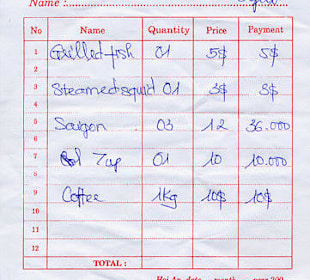 Name :
No Name Quantity Price Payment
1 Grilled fish 01 5$ 5$
2
3 Steamed squid 01 3$ 3$
4
5 Saigon 03 12 36.000
6
7 7up 01 10 10.000
8
9 Coffee 1kg 10$ 10$
10
11
12
TOTAL :
Hoi An, date month year 200